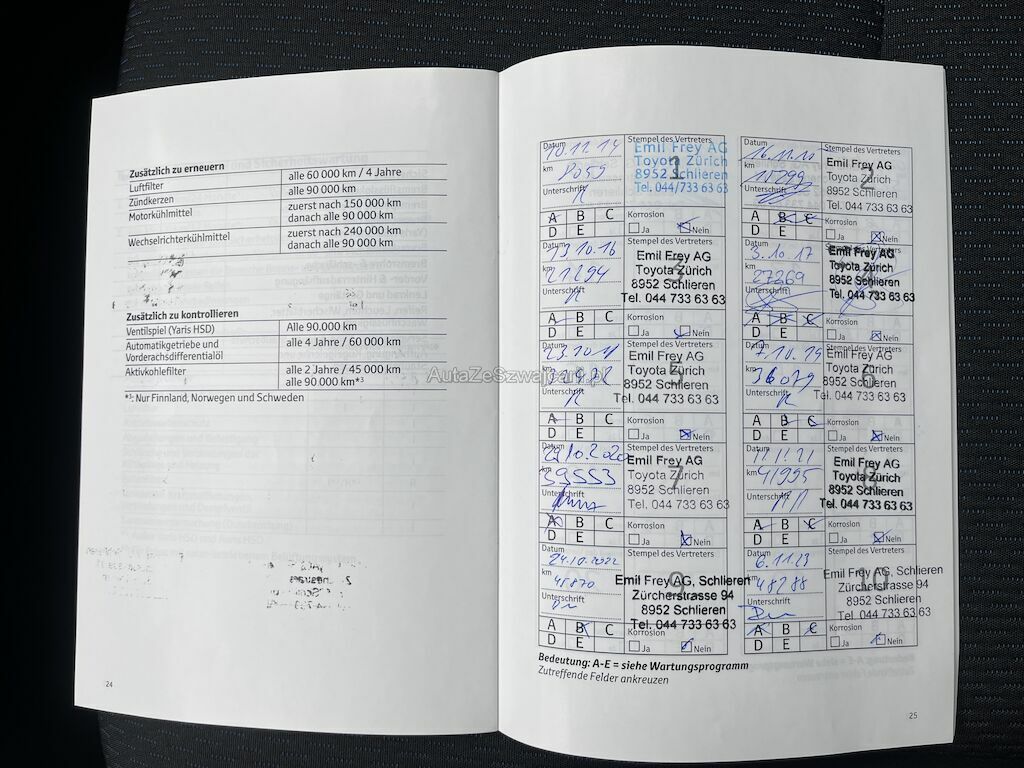 Zusätzlich zu erneuern
Luftfilter alle 60 000 km / 4 Jahre
Zündkerzen alle 90 000 km
Motorkühlmittel zuerst nach 150 000 km
danach alle 90 000 km
Wechselrichterkühlmittel zuerst nach 240 000 km
danach alle 90 000 km
Zusätzlich zu kontrollieren
Ventilspiel (Yaris HSD) Alle 90.000 km
Automatikgetriebe und alle 4 Jahre / 60 000 km
Vorderachsdifferentialöl
Aktivkohlefilter alle 2 Jahre / 45 000 km
alle 90 000 km*³
*³: Nur Finnland, Norwegen und Schweden
24
AutaZeSzwajcarii.pl
Datum 10.11.14 Stempel des Vertreters
Emil Frey AG
km Toyota Zürich
8952 Schlieren
Unterschrift Tel. 044/733 63 63
1
A B C Korrosion
D E Ja Nein
Datum Stempel des Vertreters
Emil Frey AG
km 15299 Toyota Zürich
Unterschrift 8952 Schlieren
Tel. 044 733 63 63
2
A B C Korrosion
D E Ja Nein
Datum 13.10.16 Stempel des Vertreters
Emil Frey AG
km 21294 Toyota Zürich
Unterschrift 8952 Schlieren
Tel. 044 733 63 63
3
A B C Korrosion
D E Ja Nein
Datum 3.10.17 Stempel des Vertreters
Emil Frey AG
km 27269 Toyota Zürich
Unterschrift 8952 Schlieren
Tel. 044 733 63 63
A B C Korrosion
D E Ja Nein
Datum Stempel des Vertreters
Emil Frey AG
km Toyota Zürich
8952 Schlieren
Unterschrift Tel. 044 733 63 63
5
A B C Korrosion
D E Ja Nein
Datum 7.10.19 Stempel des Vertreters
Emil Frey AG
km 36079 Toyota Zürich
8952 Schlieren
Unterschrift Tel. 044 733 63 63
6
A B C Korrosion
D E Ja Nein
Datum 29.10.2020 Stempel des Vertreters
Emil Frey AG
km 39553 Toyota Zürich
8952 Schlieren
Unterschrift Tel. 044 733 63 63
7
A B C Korrosion
D E Ja Nein
Datum Stempel des Vertreters
Emil Frey AG
km 41995 Toyota Zürich
8952 Schlieren
Unterschrift Tel. 044 733 63 63
8
A B C Korrosion
D E Ja Nein
Datum 24.10.2022 Stempel des Vertreters
km 45870 Emil Frey AG, Schlieren
Zürcherstrasse 94
Unterschrift 8952 Schlieren
Tel. 044 733 63 63
9
A B C Korrosion
D E Ja Nein
Datum 6.11.23 Stempel des Vertreters
km 48288 Emil Frey AG, Schlieren
Zürcherstrasse 94
Unterschrift 8952 Schlieren
Tel. 044 733 63 63
10
A B C Korrosion
D E Ja Nein
Bedeutung: A-E = siehe Wartungsprogramm
Zutreffende Felder ankreuzen
25